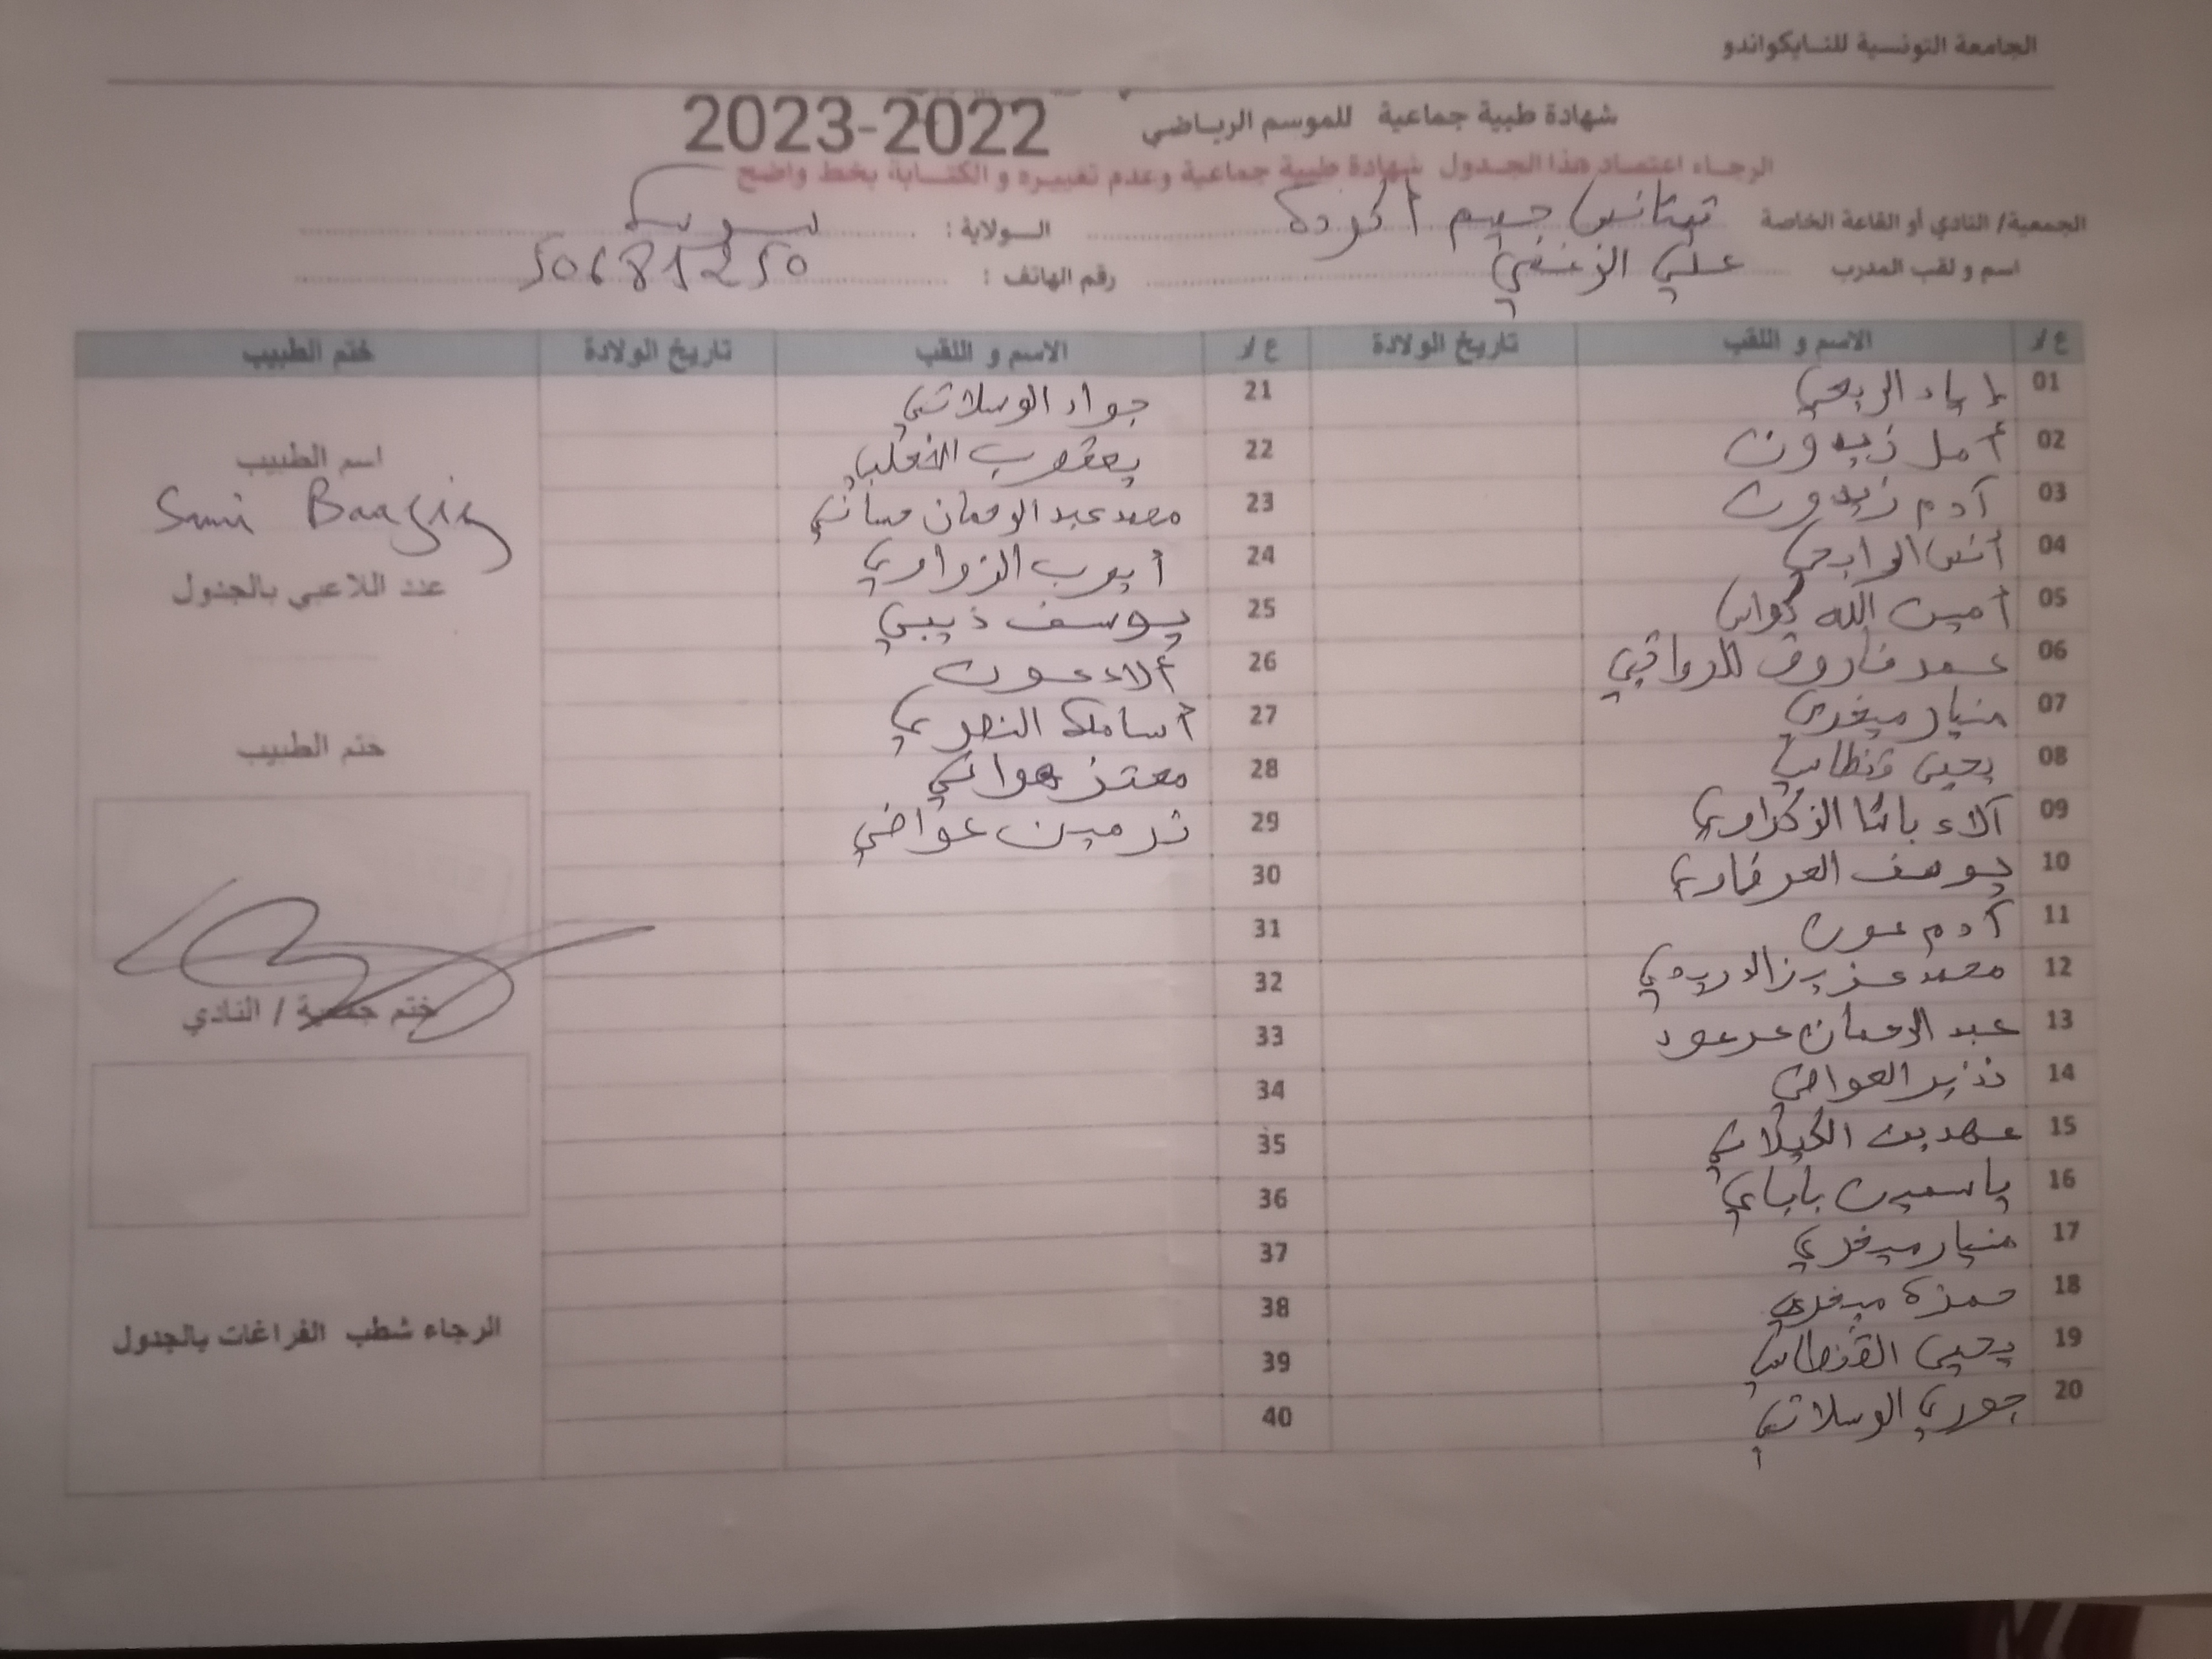 الجامعة التونسية للتايكواندو
شهادة طبية جماعية للموسم الرياضي 2023-2022
الرجاء اعتماد هذا الجدول شهادة طبية جماعية وعدم تغييره و الكتابة بخط واضح
الجمعية/ النادي أو القاعة الخاصة تيتانس جيم أكودة الولاية : سوسة
اسم و لقب المدرب علي الزنفي رقم الهاتف : 50681250
ع/ر الاسم و اللقب تاريخ الولادة ع/ر الاسم و اللقب تاريخ الولادة ختم الطبيب
01 إياد الربحي 21 جواد الوسلاتي
02 أمل زيدون 22 يعقوب
03 آدم زيدون 23 محمد عبد الرحمان حساني
04 أنس الرابحي 24 أيوب الزواري
05 أمين الله كواس 25 يوسف ذيبي
06 فاروق 26 ألاء عون
07 منيار ميغري 27 أسامة النصري
08 يحيى قنطاس 28 معتز هواني
09 آلاء باشا الزكراوي 29 نرمين عواضي
10 يوسف 30
11 آدم عون 31
12 محمد عزيز الدريدي 32
13 عبد الرحمان 33
14 نذير العواضي 34
15 عهد بن الكيلاني 35
16 ياسمين باباي 36
17 منيار ميغري 37
18 حمزة ميغري 38
19 يحيى القنطاس 39
20 جوري الوسلاتي 40
اسم الطبيب
عدد اللاعبي بالجدول
ختم الطبيب
ختم جمعية / النادي
الرجاء شطب الفراغات بالجدول